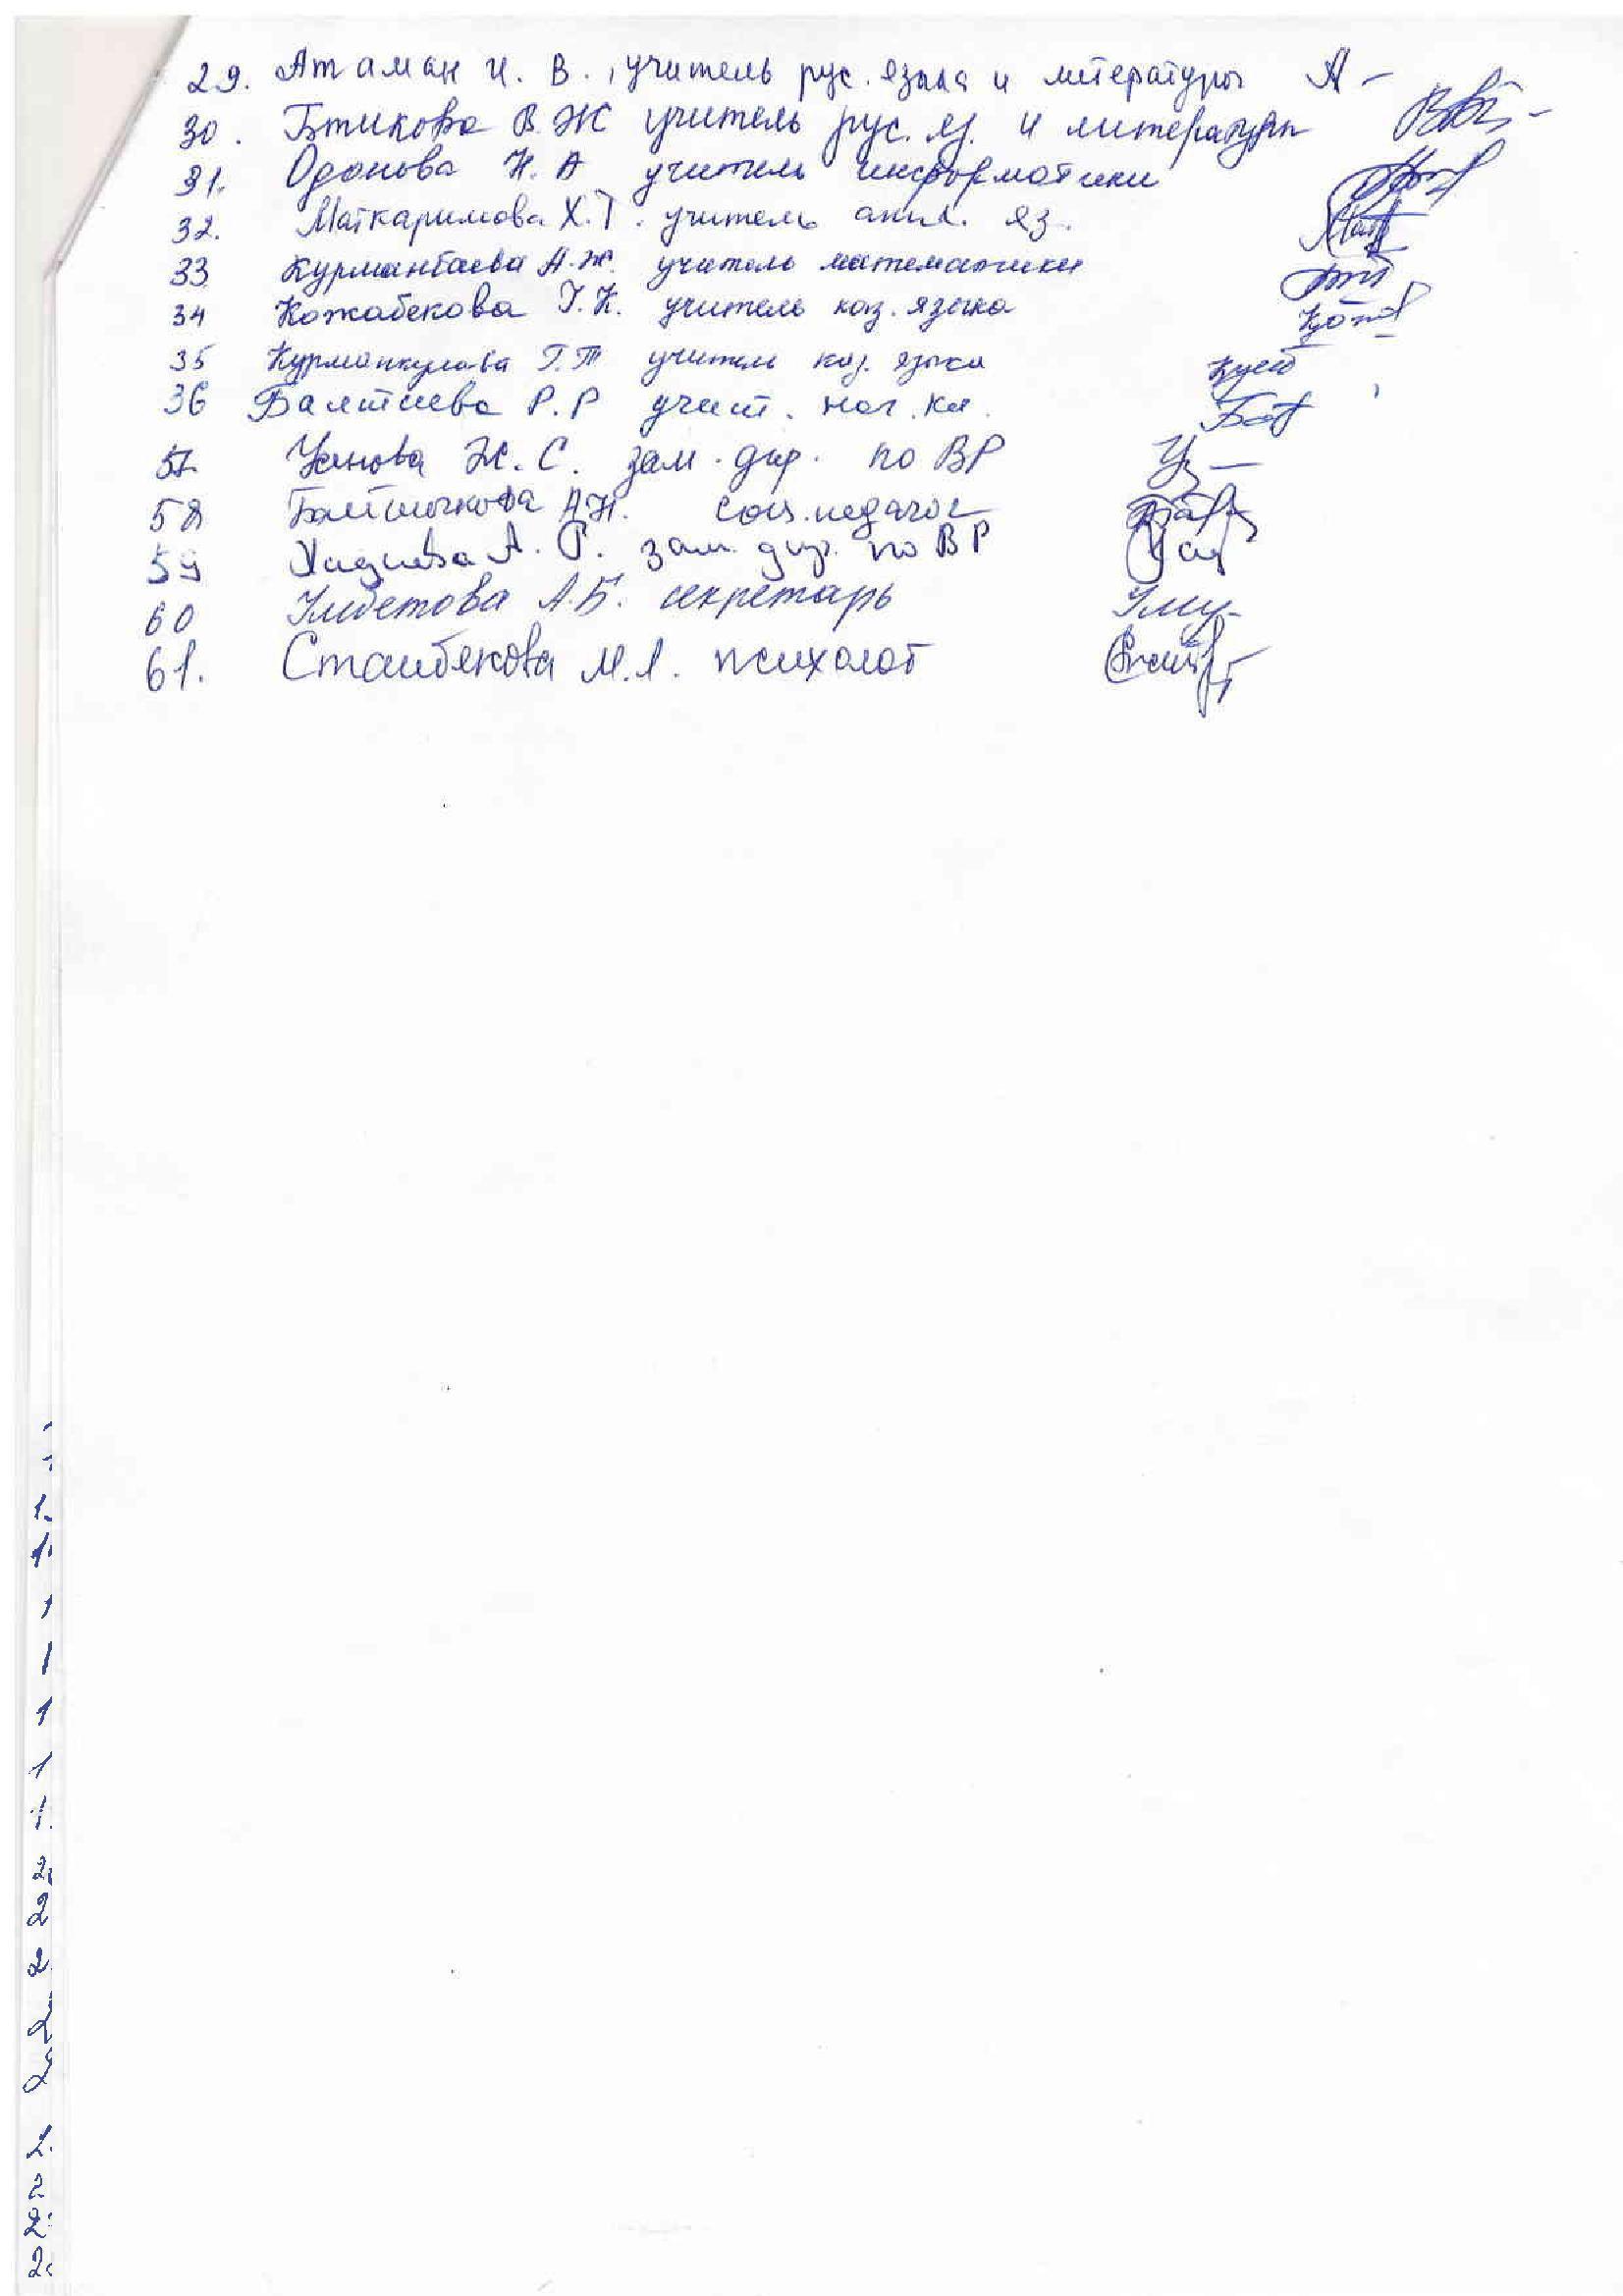 29. Атаман И. В., учитель рус. языка и литературы А-
30. Бтикова В.Ж учитель рус. яз. и литературы
31. Одонова Н. А учитель информатики
32. Маткаримова Х.Т. учитель англ. яз.
33 Курманбаева А.Ж. учитель математики
34 Кожабекова Г.К. учитель каз. языка
35 Курманкулова Г.Т учитель каз. языка
36 Балтиева Р.Р учит. нач. кл.
57 Усинова Ж. С. зам. дир. по ВР
58 А.Н. соц. педагог
59 А. Р. зам. дир. по ВР
60 Умбетова А.Б. секретарь
61. Стамбекова М.А. психолог